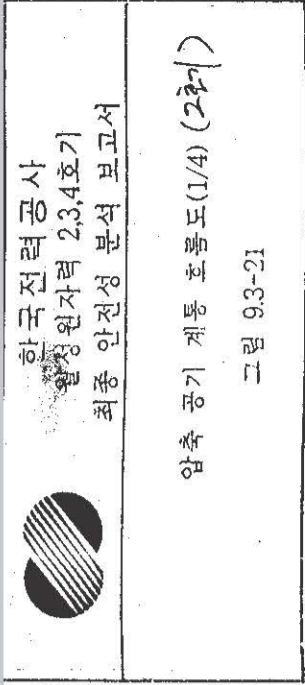 한국전력공사
월성원자력 2,3,4호기
최종 안전성 분석 보고서
압축 공기 계통 흐름도(1/4) (2호기)
그림 9.3-21